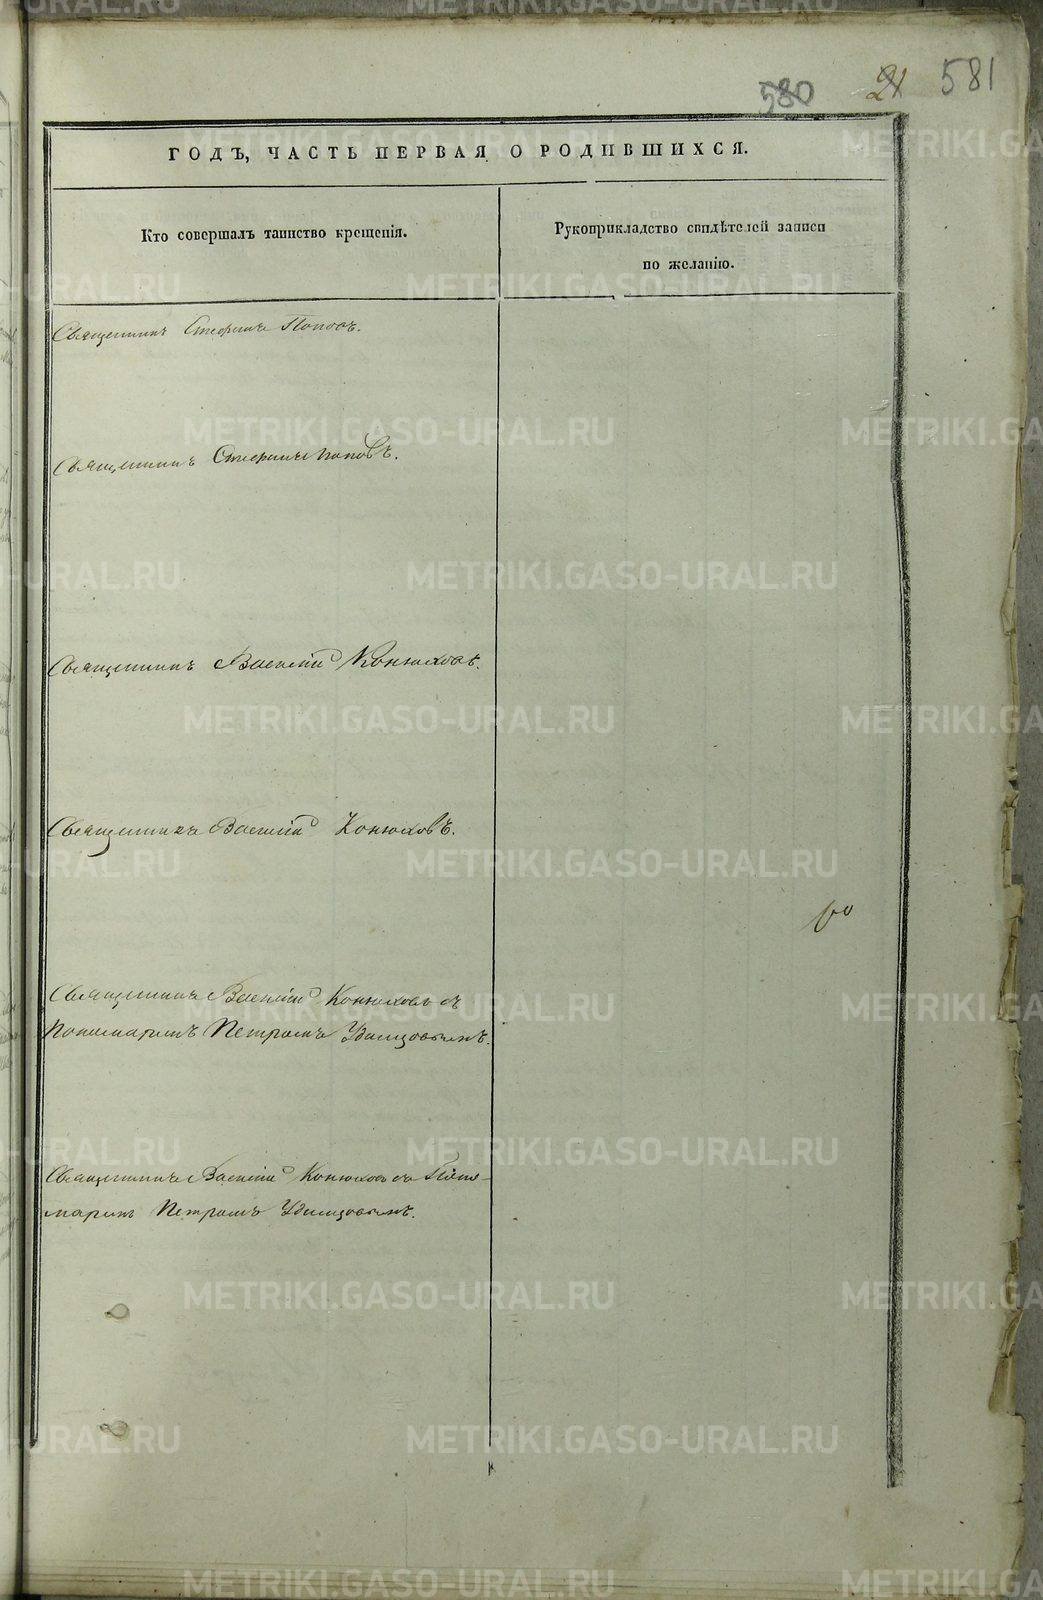 580 21 581
ГОДЪ, ЧАСТЬ ПЕРВАЯ О РОДИВШИХСЯ.
Кто совершалъ таинство крещенія.
Рукоприкладство свидѣтелей записи
по желанію.
Священникъ Стефанъ Поповъ.
Священникъ Стефанъ Поповъ.
Священникъ Василій Конюховъ.
Священникъ Василій Конюховъ.
Священникъ Василій Конюховъ съ
Пономаремъ Петромъ Удинцовымъ.
Священникъ Василій Конюховъ съ Поно-
маремъ Петромъ Удинцовымъ.
METRIKI.GASO-URAL.RU